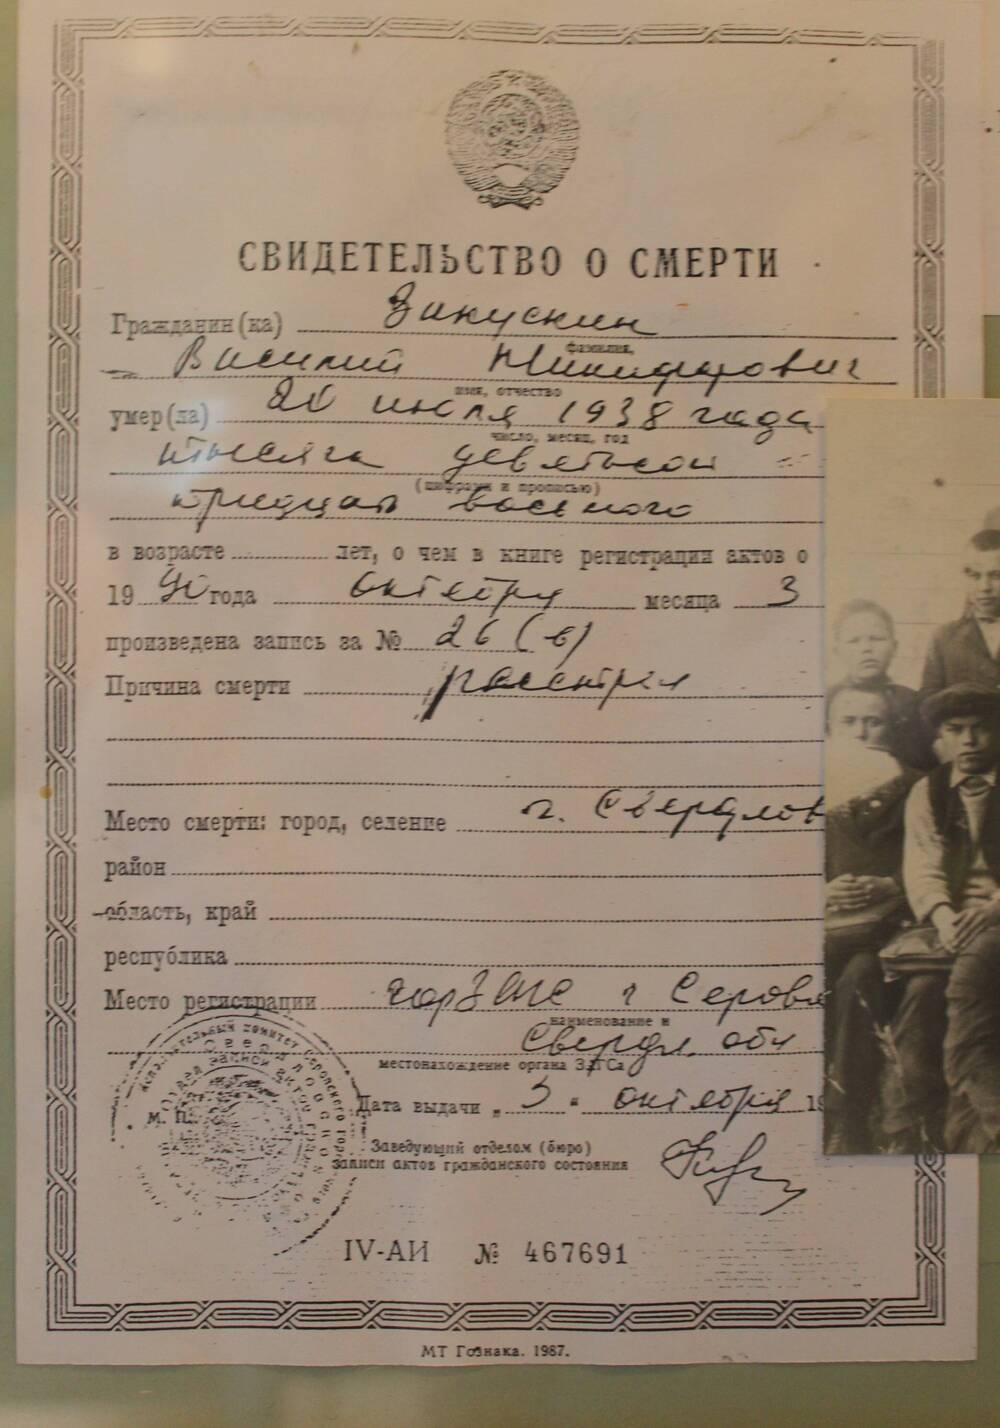 СВИДЕТЕЛЬСТВО О СМЕРТИ
Гражданин(ка) Закускин
фамилия,
Василий Никифорович
имя, отчество
умер(ла) 20 июля 1938 года
число, месяц, год
тысяча девятьсот
(цифрами и прописью)
тридцать восьмого
в возрасте лет, о чем в книге регистрации актов о
19 90 года октября месяца 3
произведена запись за № 26 (в)
Причина смерти расстрел
Место смерти: город, селение г. Свердловс
район
область, край
республика
Место регистрации горЗАГС г Серова
наименование и
Свердл. обл
местонахождение органа ЗАГСа
М. П.
Дата выдачи „3" октября 19
Заведующий отделом (бюро)
записи актов гражданского состояния
IV-АИ № 467691
МТ Гознака. 1987.